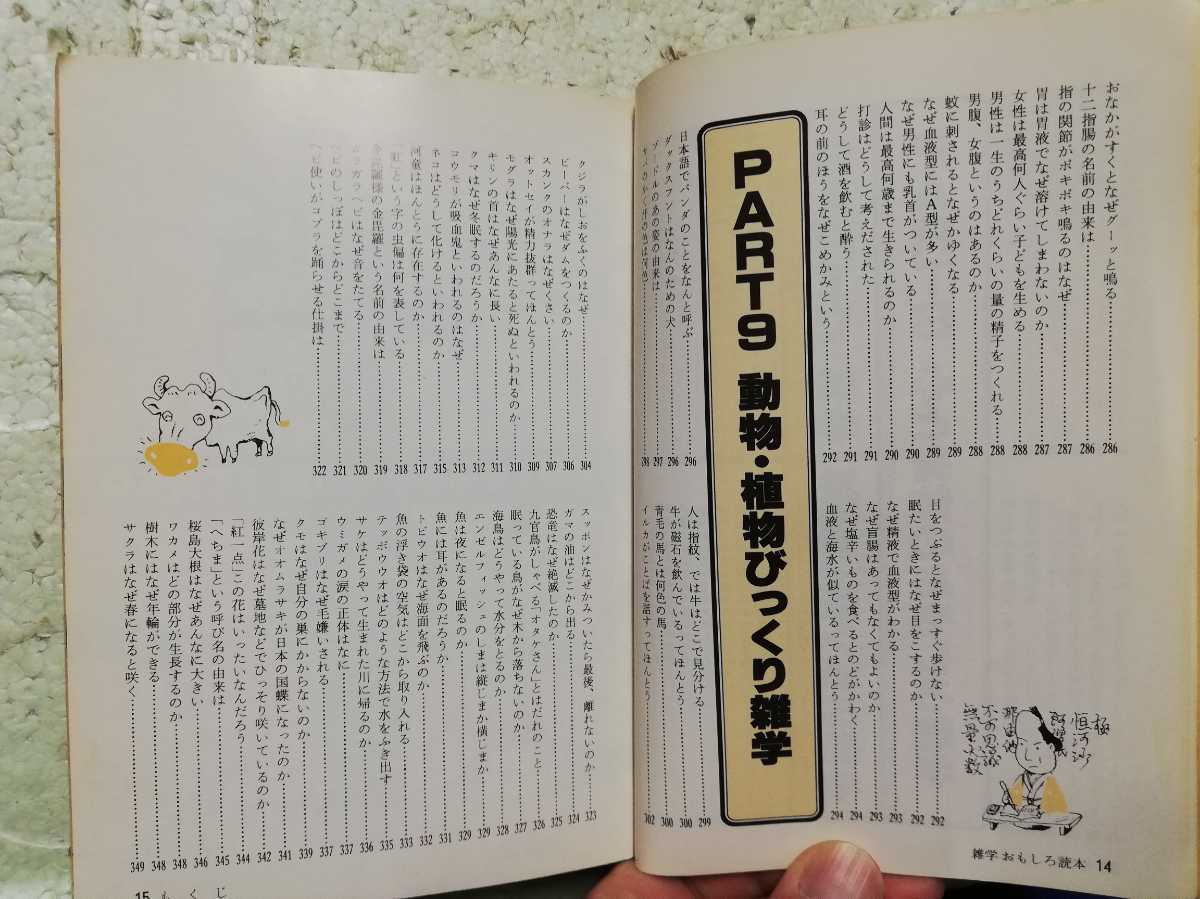 おなかがすくとなぜグーッと鳴る………286
十二指腸の名前の由来は………286
指の関節がポキポキ鳴るのはなぜ………287
胃は胃液でなぜ溶けてしまわないのか………287
女性は最高何人ぐらい子どもを生める………288
男性は一生のうちどれくらいの量の精子をつくれる………288
男腹、女腹というのはあるのか………288
蚊に刺されるとなぜかゆくなる………289
なぜ血液型にはA型が多い………289
なぜ男性にも乳首がついている………290
人間は最高何歳まで生きられるのか………290
打診はどうして考えだされた………291
どうして酒を飲むと酔う………291
耳の前のほうをなぜこめかみという………292
目をつぶるとなぜまっすぐ歩けない………292
眠たいときにはなぜ目をこするのか………292
なぜ精液で血液型がわかる………293
なぜ盲腸はあってもなくてもよいのか………293
なぜ塩辛いものを食べるとのどがかわく………294
血液と海水が似ているってほんとう………294
極
恒河沙
阿僧祇
那由他
不可思議
無量大数
PART9 動物・植物びっくり雑学
日本語でパンダのことをなんと呼ぶ………296
ダックスフントはなんのための犬………296
プードルのあの姿の由来は………297
カバのかく汗の色は何色………298
人は指紋、では牛はどこで見分ける………299
牛が磁石を飲んでいるってほんとう………300
青毛の馬とは何色の馬………300
イルカがことばを話すってほんとう………302
雑学おもしろ読本 14
クジラがしおをふくのはなぜ………304
ビーバーはなぜダムをつくるのか………306
スカンクのオナラはなぜくさい………307
オットセイが精力抜群ってほんとう………309
モグラはなぜ陽光にあたると死ぬといわれるのか………310
キリンの首はなぜあんなに長い………311
クマはなぜ冬眠するのだろうか………312
コウモリが吸血鬼といわれるのはなぜ………313
ネコはどうして化けるといわれるのか………315
河童はほんとうに存在するのか………317
「虹」という字の虫偏は何を表している………318
金毘羅様の金毘羅という名前の由来は………319
ガラガラヘビはなぜ音をたてる………320
ヘビのしっぽはどこからどこまで………321
ヘビ使いがコブラを踊らせる仕掛は………322
スッポンはなぜかみついたら最後、離れないのか………323
ガマの油はどこから出る………324
恐竜はなぜ絶滅したのか………325
九官鳥がしゃべる「オタケさん」とはだれのこと………326
眠っている鳥がなぜ木から落ちないのか………327
海鳥はどうやって水分をとるのか………328
エンゼルフィッシュのしまは縦じまか横じまか………329
魚は夜になると眠るのか………329
魚には耳があるのだろうか………331
トビウオはなぜ海面を飛ぶのか………332
魚の浮き袋の空気はどこから取り入れる………333
テッポウウオはどのような方法で水をふき出す………335
サケはどうやって生まれた川に帰るのか………336
ウミガメの涙の正体はなに………337
ゴキブリはなぜ毛嫌いされる………337
クモはなぜ自分の巣にかからないのか………339
なぜオオムラサキが日本の国蝶になったのか………341
彼岸花はなぜ墓地などでひっそり咲いているのか………342
「紅一点」この花はいったいなんだろう………344
「へちま」という呼び名の由来は………345
桜島大根はなぜあんなに大きい………346
ワカメはどの部分が生長するのか………348
樹木にはなぜ年輪ができる………348
サクラはなぜ春になると咲く………349
15 もくじ